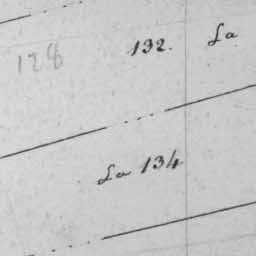 128 132. La
La 134